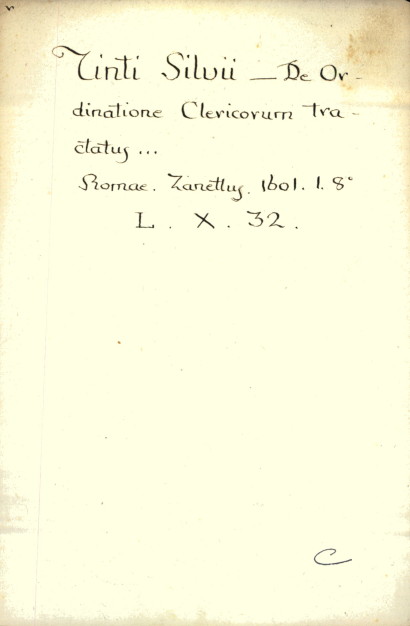 Tinti Silvii — De Or-
dinatione Clericorum tra-
ctatus ...
Romae. Zanettus. 1601. 1. 8°
L. X. 32.
C